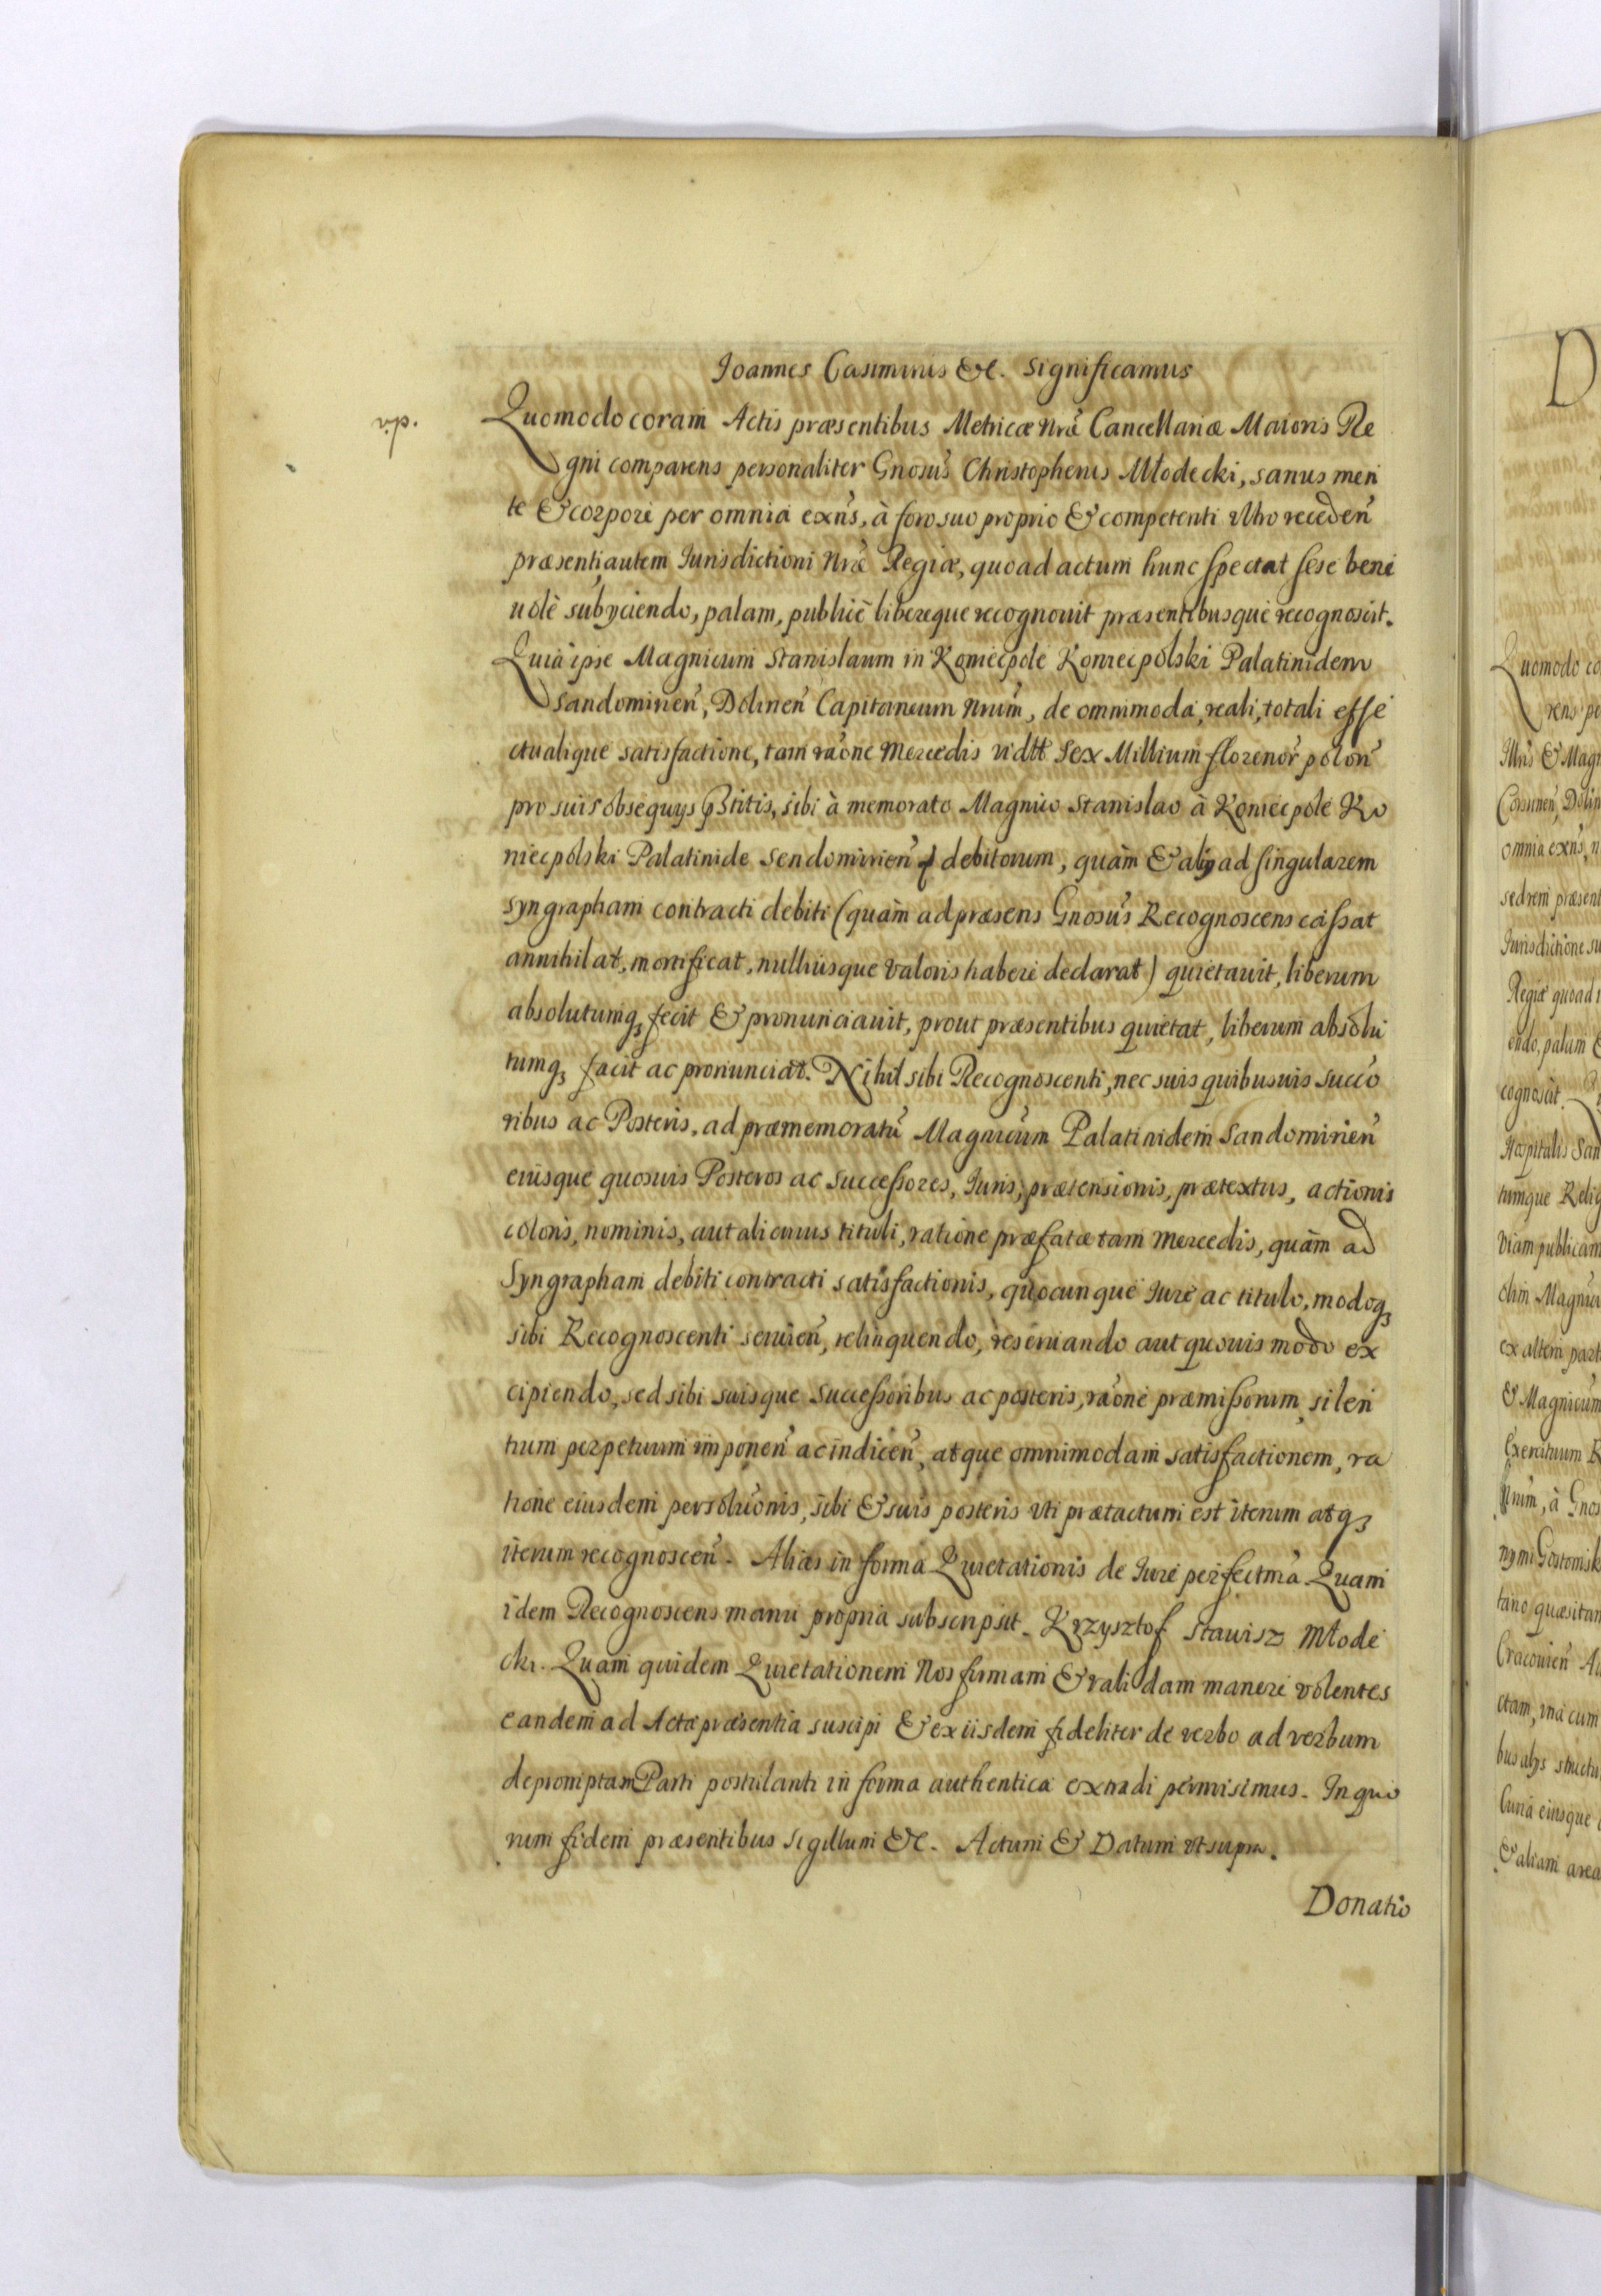 Joannes Casimirus &c. significamus
Quomodo coram Actis præsentibus Metricæ Nræ Cancellariæ Maioris Re
gni comparens personaliter Gnosus Christopherus Młodecki, sanus men
te & corpore per omnia exns, à foro suo proprio & competenti vltro receden
præsenti autem Iurisdictioni Nræ Regiæ, quoad actum hunc spectat sese bene
uolè subyciendo, palam, publicè libereque recognouit præsentibusque recognoscit.
Quia ipse Magnicum Stanislaum in Koniecpole Koniecpolski Palatinidem
Sandomirien, Dolinen Capitaneum Nrum, de omnimoda, reali, totali effe
ctualique satisfactione, tam raone Mercedis vidtt Sex Millium florenor polon
pro suis obsequys pstitis, sibi à memorato Magnico Stanislao à Koniecpole Ko
niecpolski Palatinide Sendomirien debitorum, quàm & aliy ad singularem
syngrapham contracti debiti (quàm ad præsens Gnosus Recognoscens cassat
annihilat, mortificat, nulliusque valoris habere declarat) quietauit, liberum
absolutumq; fecit & pronunciauit, prout præsentibus quietat, liberum absolu
tumq; facit ac pronunciat. Nihil sibi Recognoscenti, nec suis quibusuis Succo
ribus ac Posteris, ad præmemoratu Magnicum Palatinidem Sandomirien
eiusque quosuis Posteros ac successores, Iuris, prætensionis, prætextus, actionis
coloris, nominis, aut alicuius tituli, ratione præfatæ tam Mercedis, quàm ad
Syngrapham debiti contracti satisfactionis, quocunque Iure ac titulo, modoq;
sibi Recognoscenti seruien, relinquendo, reseruando aut quouis modo ex
cipiendo, sed sibi suisque Successoribus ac posteris, raone præmissorum silen
tium perpetuum imponen ac indicen, atque omnimodam satisfactionem, ra
tione eiusdem persoluonis, sibi & suis posteris vti prætactum est iterum atq;
iterum recognoscen. Alias in forma Quietationis de Iure perfectma. Quam
idem Recognoscens manu propria subscripsit. Krzysztof Stawisz Młode
cki. Quam quidem Quietationem Nos firmam & validam manere volentes
eandem ad Acta præsentia suscipi & ex iisdem fideliter de verbo ad verbum
depromptam Parti postulanti in forma authentica extradi permisimus. In quo
rum fidem præsentibus sigillum &c. Actum & Datum vt supra.
Donatio